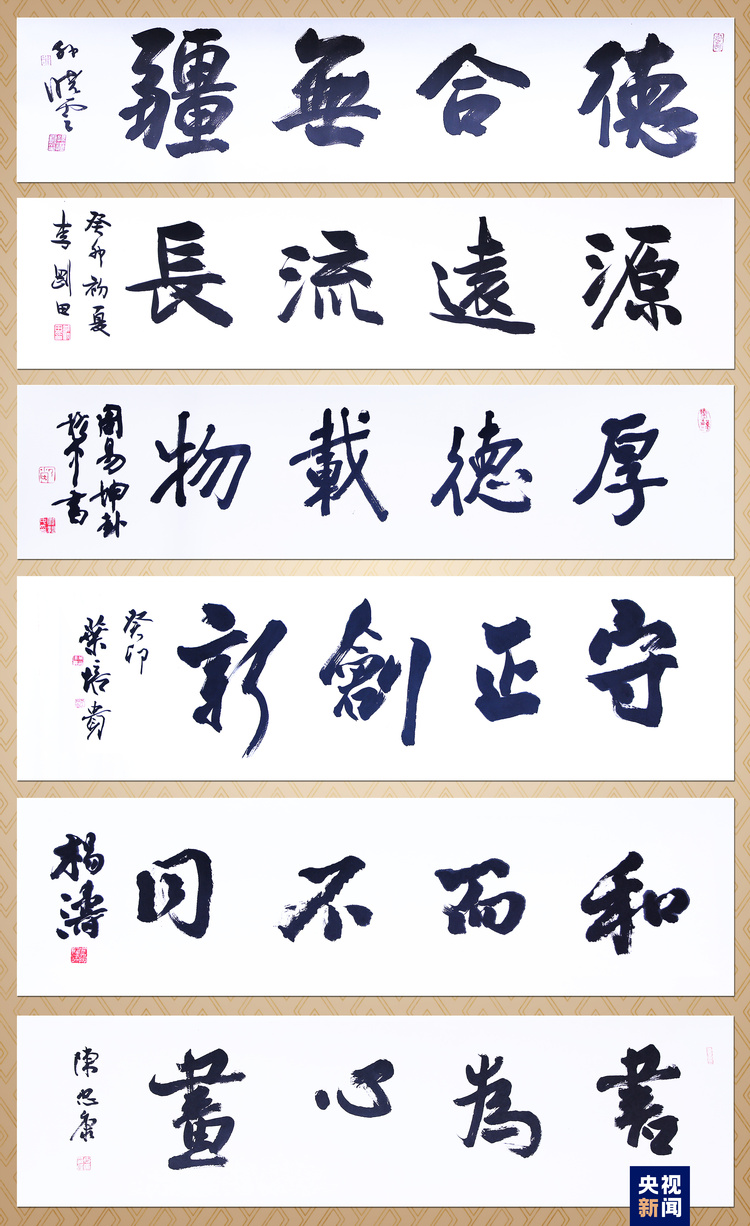 德合無疆
孫曉雲
源遠流長
癸卯初夏
李剛田
厚德載物
周易坤卦
書
守正創新
癸卯
葉培貴
和而不同
楊濤
書為心畫
陳忠康
央视
新闻